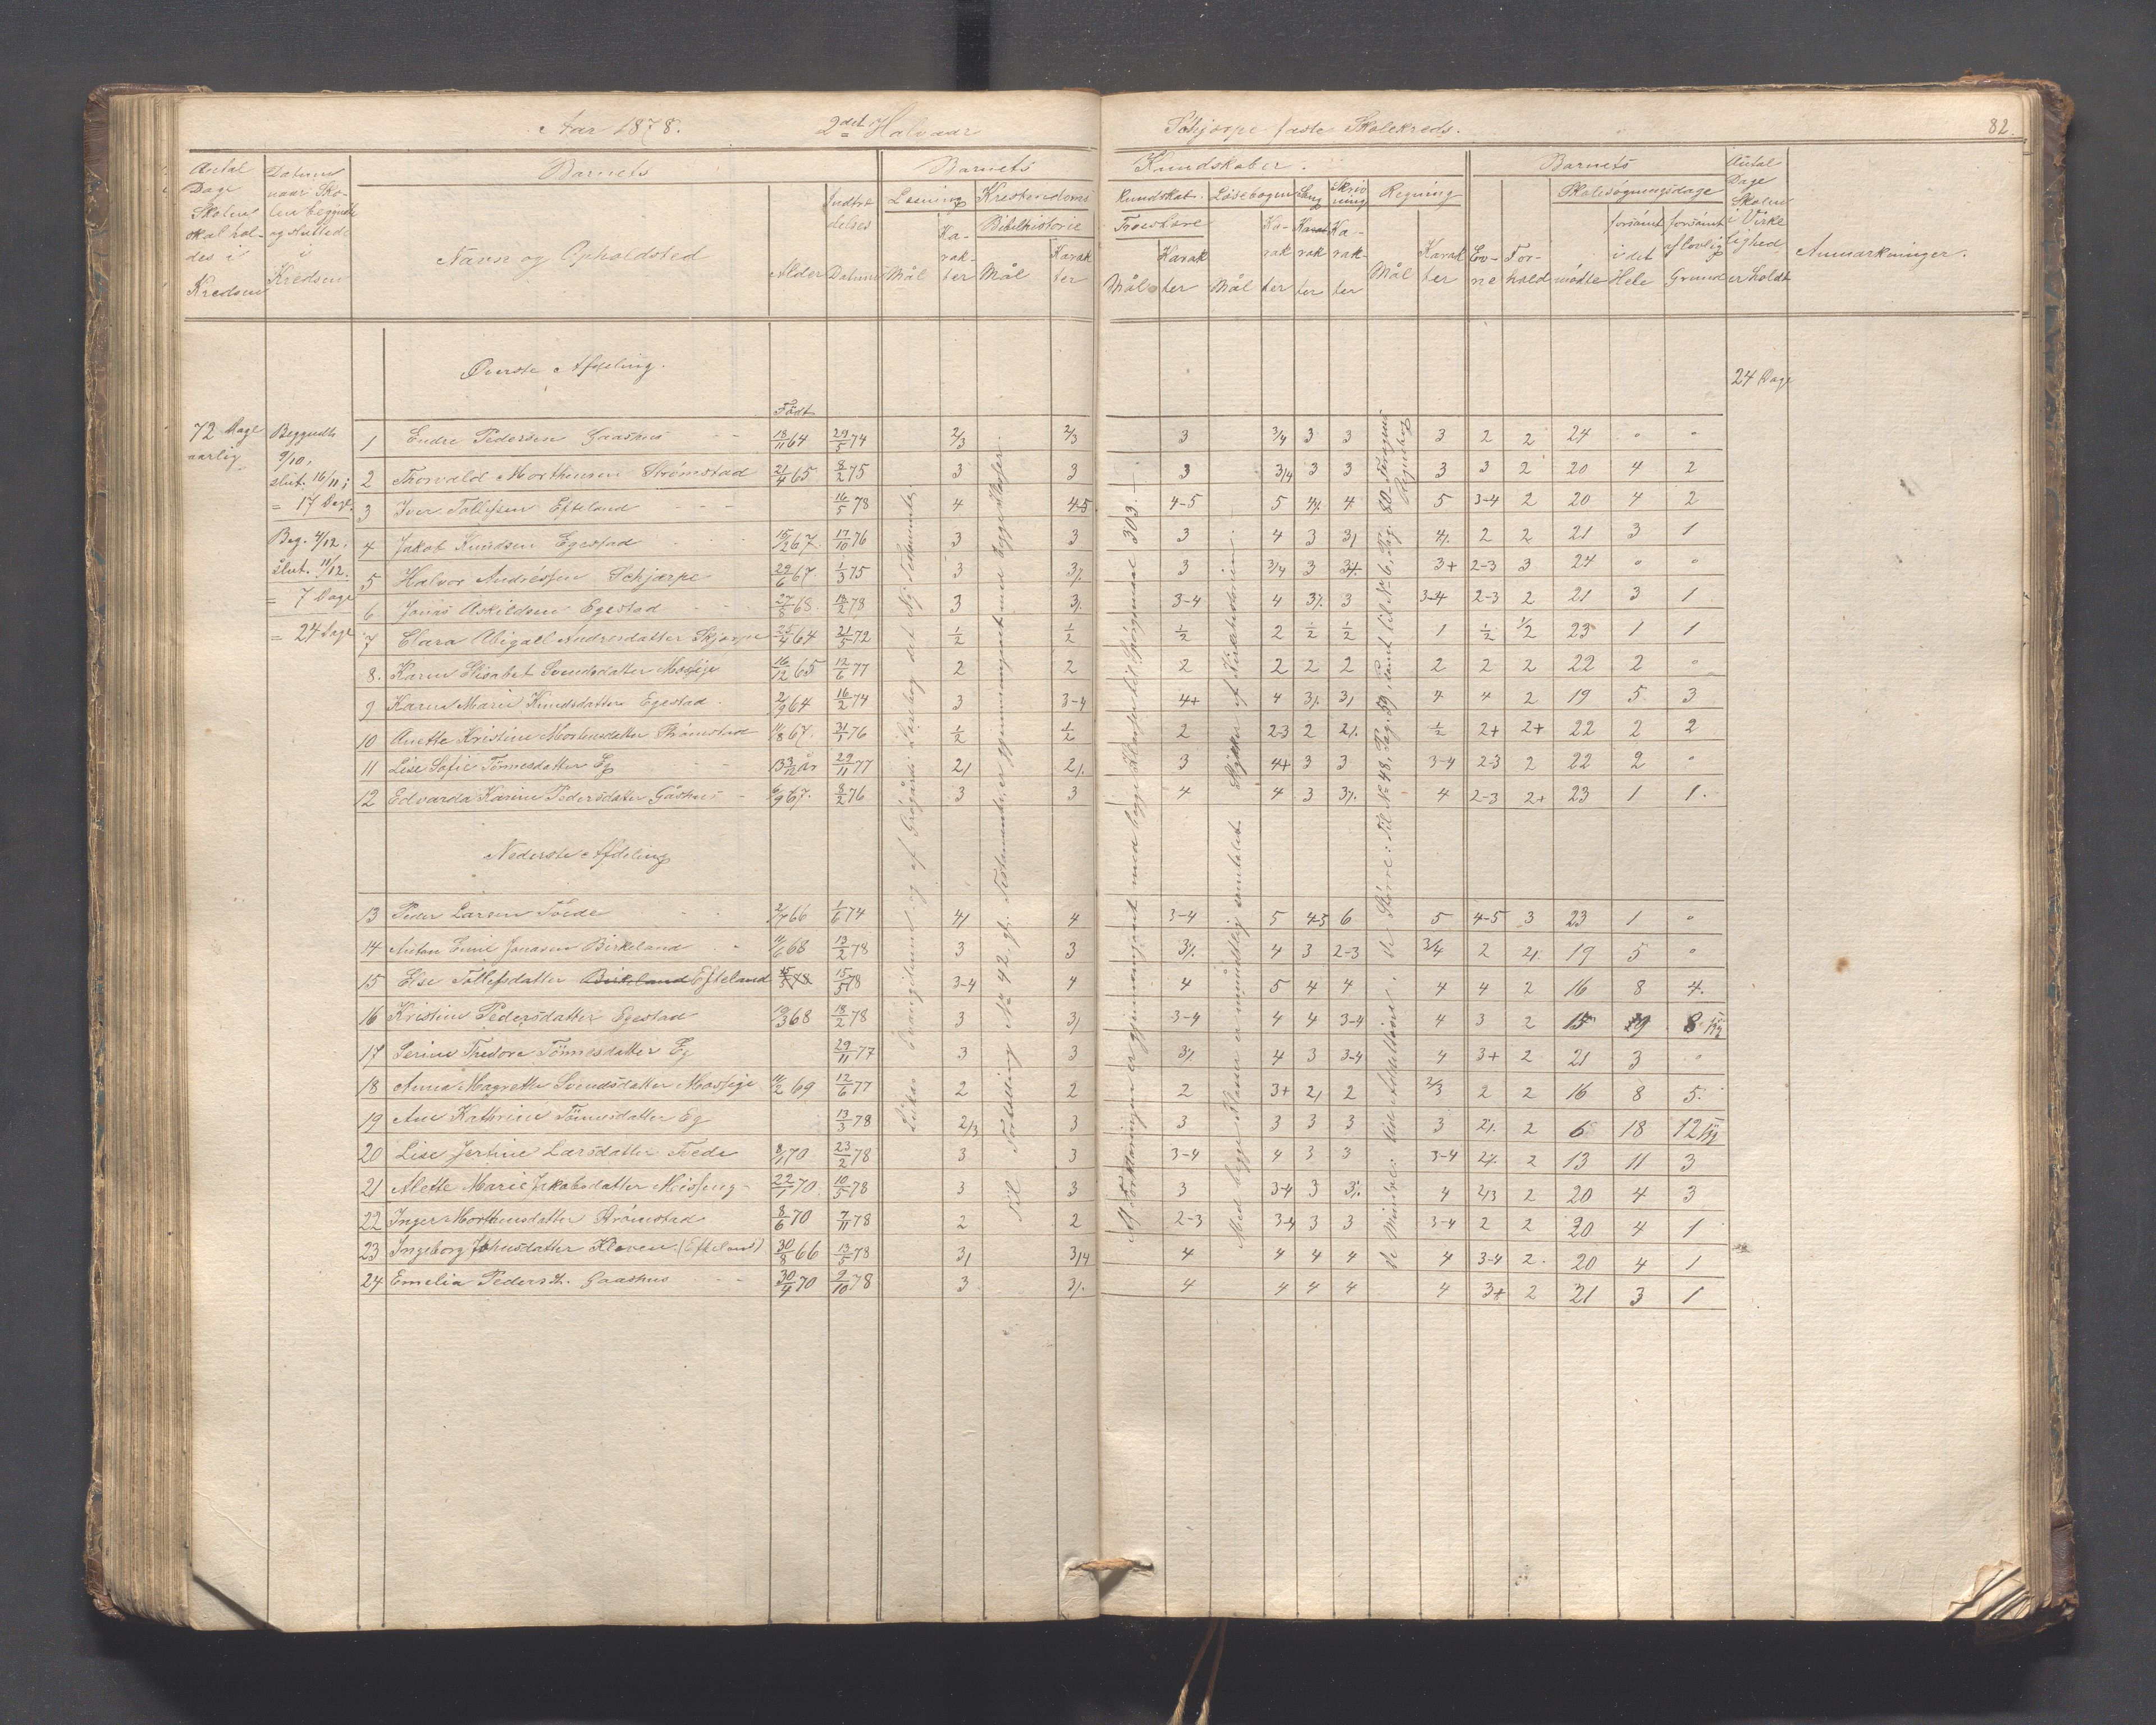 Aar 1878. 2det Halvaar Schjærpe faste Skolekreds. 82.
Antal Dage Skolen skal holdes i Kredsen
Datum naar Skolen begyndte og sluttede i Kredsen
Barnets
Navn og Opholdsted
Alder
Indtrædelses Datum
Barnets Kundskaber.
Læsning Mål Karakter
Kristendoms kundskab.
Bibelhistorie Mål Karakter
Troeslære Mål Karakter
Læsebogen Mål Karakter
Sang Karakter
Skrivning Karakter
Regning Mål Karakter
Barnets
Evne
Forhold
Skolesøgningsdage
mødte
forsömt i det Hele
forsömt af lovlig Grund
Antal Dage Skolen i Virkelighed er holdt
Anmærkninger.
Øverste Afdeling.
24 Dage
Født
72 Dage aarlig
Begyndte 9/10,
slut. 16/11;
= 17 Dage.
Beg. 4/12,
slut. 11/12.
= 7 Dage
= 24 Dage
1 Endre Pedersen Gaashus 18/11 64 29/5 74 2/3 2/3 3 3/4 3 3 3 2 2 24 " "
2 Thorvald Morthensen Strømstad 21/4 65 8/2 75 3 3 3 3/4 3 3 3 3 2 20 4 2
3 Iver Tollefsen Efteland 16/5 78 4 4-5 4-5 5 4/. 4 5 3-4 2 20 4 2
4 Jakob Knudsen Egestad 15/2 67. 17/10 76 3 3 3 4 3 3/ 4/. 2 2 21 3 1
5 Halvor Andreassen Schjærpe 29/6 67. 1/3 75 3 3/. 3 3/4 3 3/. 3+ 2-3 3 24 " "
6 Jonas Askildsen Egestad 27/5 68. 18/2 78 3 3/. 3-4 4 3/. 3 3-4 2-3 2 21 3 1
7 Clara Abigael Andreasdatter Skjærpe 25/4 64 21/5 72 1/2 1/2 1/2 2 1/2 1/2 1 1/2 1/2 23 1 1
8. Karen Elisabet Svendsdatter Mossige 16/12 65 12/6 77 2 2 2 2 2 2 2 2 2 22 2 "
9 Karen Marie Knudsdatter Egestad 2/9 64 16/2 74 3 3-4 4+ 4 3/. 3/ 4 4 2 19 5 3
10 Anette Kristine Mortensdatter Strömstad 11/8 67. 31/1 76 1/2 1/2 2 2-3 2 2/. 1/2 2+ 2+ 22 2 2
11 Lise Sofie Tönnesdatter Eg 13 3/12 år 29/11 77 2/ 2/. 3 4+ 3 3 3-4 2-3 2 22 2 "
12 Edvarda Karine Pedersdatter Gåshus 6/9 67. 8/2 76 3 3 4 4 3 3/. 4 2-3 2+ 23 1 1.
Nederste Afdeling
13 Peder Larsen Tvede 2/4 66 1/6 74 4/ 4 3-4 5 4-5 6 5 4-5 3 23 1 "
14 Anton Emil Jonasen Birkeland 11/6 68 13/2 78 3 3 3/. 4 3 2-3 3/4 2 2/. 19 5 "
15 Else Tollefsdatter Birkeland Efteland 15/5 78 15/5 78 3-4 4 4 5 4 4 4 4 2 16 8 4.
16 Kristine Pedersdatter Egestad 19/3 68 18/2 78 3 3/ 3-4 4 4 3-4 4 3 2 15 9 8
17 Serine Thedora Tönnesdatter Eg 29/11 77 3 3 3/. 4 3 3-4 4 3+ 2 21 3 "
18 Anna Magrethe Svendsdatter Mossige 11/2 69 12/6 77 2 2 2 3+ 2/ 2 2/3 2 2 16 8 5.
19 Ane Kathrine Tönnesdatter Eg 13/3 78 2/3 3 3 3 3 3 3 2/. 2 6 18 12
20 Lise Jertine Larsdatter Tvede 8/1 70 23/2 78 3 3 3-4 4 3 3 3-4 2/. 2 13 11 3
21 Alette Marie Jakobsdatter 22/1 70. 10/5 78 3 3 3 3-4 3 3/. 4 2/3 2 20 4 3
22 Inger Morthensdatter Strömstad 8/6 70 7/11 78 2 2 2-3 3-4 3 3 3-4 2 2 20 4 1
23 Ingeborg Johnsdatter Kleven. (Efteland) 30/8 66 13/5 78 3/ 3/4 4 4 4 4 4 3-4 2. 20 4 1
24 Emelia Pedersdt. Gaashus 30/4 70 9/10 78 3 3/. 4 4 4 4 4 3+ 2 21 3 1
Lukas Evangelium og af Grøgårds Læsebog det Ny Testamente.
Til Fortælling No 42, gl. Testamente, er gjennemgaaet med begge Klasser.
Af Forklaringen er gjennemgaaet med begge Klasser til Spørgsmaal 303.
Med begge Klasser er mundtlig samtalet Stykker af Kirkehistorien.
de Mindre: lidt Addition, de Större: Til No 48, Pag. 59, samt til No 6, Pag. 80